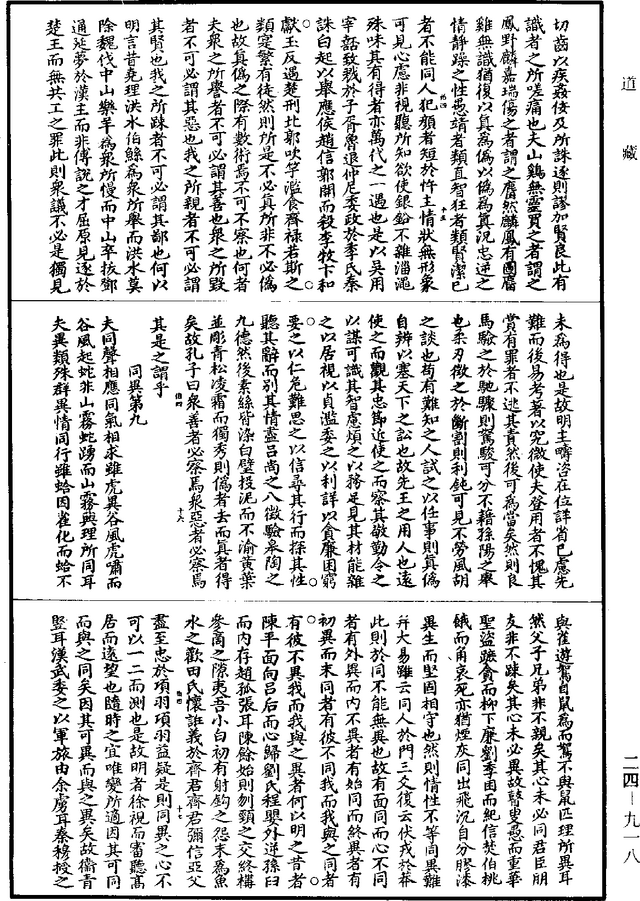 道藏
切齒以疾姦佞及所誅逐則謬加賢良此有
識者之所嗟痛也夫山鷄無靈買之者謂之
鳳野麟嘉瑞傷之者謂之麏然麟鳳有國麏
雞無識猶復以真為偽以偽為真況忠逆之
情靜躁之性愚靖者類直智狂者類賢潔己
者不能同人犯顏者短於忤主情狀無形象
可見心慮非視聽所知欲使銀鈆不雜淄澠
殊味其有得者亦萬代之一遇也是以吳用
宰嚭致戮於子胥魯退仲尼委政於季氏秦
誅白起以舉應侯趙信郭開而殺李牧卞和
獻玉反遇楚刑北郭吹竽濫食齊祿若斯之
類寔繁有徒然則所是不必真所非不必偽
也故真偽之際有數術焉不可不察也何者
夫衆之所譽者不可必謂其善也衆之所毀
者不可必謂其惡也我之所親者不可必謂
其賢也我之所踈者不可必謂其鄙也何以
明言昔堯理洪水伯鯀為衆所舉而洪水莫
除魏伐中山樂羊為衆所慢而中山卒拔鄧
通延夢於漢主而非傅說之才屈原見逐於
楚王而無共工之罪此則衆議不必是獨見
未為得也是故明主疇咨在位詳省己慮先
難而後易考著以究徵使夫登用者不愧其
賞有罪者不逃其責然後可為當矣然則良
馬驗之於馳驟則駑駿可分不藉孫陽之舉
也柔刃徵之於斷割則利鈍可見不勞風胡
之談也苟有難知之人試之以任事則真偽
自辨以塞天下之訟也故先王之用人也遠
使之而觀其忠節近使之而察其敬勤令之
以謀可識其智慮煩之以務足見其材能雜
之以居視以貞濫委之以利詳以貪廉困窮
要之以仁危難思之以信尋其行而探其性
聽其辭而別其情盡呂尚之八徵驗皋陶之
九德然後素絲皆染白璧投泥而不渝黄葉
並彫青松凌霜而獨秀則偽者去而真者得
矣故孔子曰衆善者必察焉衆惡者必察焉
其是之謂乎
同異第九
夫同聲相應同氣相求雖虎異谷風虎嘯而
谷風起蛇非山霧蛇踴而山霧興理所同耳
夫異類殊群異情同行雖蛤因雀化而蛤不
與雀遊鴽自鼠為而鴽不與鼠匹理所異耳
然父子兄弟非不親矣其心未必同君臣朋
友非不踈矣其心未必異故瞽叟愚而重華
聖盜蹠貪而柳下廉劉季困而紀信焚伯桃
餓而角哀死亦猶煙灰同出飛沉自分膠漆
異生而堅固相守也然則情性不等同異難
并大易雖云同人於門三爻復云伏戎於莽
此則於同不能無異也故有面同而心不同
者有外異而內不異者有始同而終異者有
初異而末同者有彼不同我而我與之同者
有彼不異我而我與之異者何以明之昔者
陳平面向呂后而心歸劉氏程嬰外逆孫臼
而內存趙孤張耳陳餘始則刎頸之交終構
參商之隙夷吾小白初有射鈎之怨末為魚
水之歡田氏懷詐義於齊君齊君彌信亞父
盡至忠於項羽項羽益疑是則同異之心不
可以一二而測也是故明者徐視而審聽高
居而遠望也隨時之宜唯變所適因其可同
而與之同矣因其可異而與之異矣故衛青
竪耳漢武委之以軍旅由余虜耳秦穆授之
二四—九一八